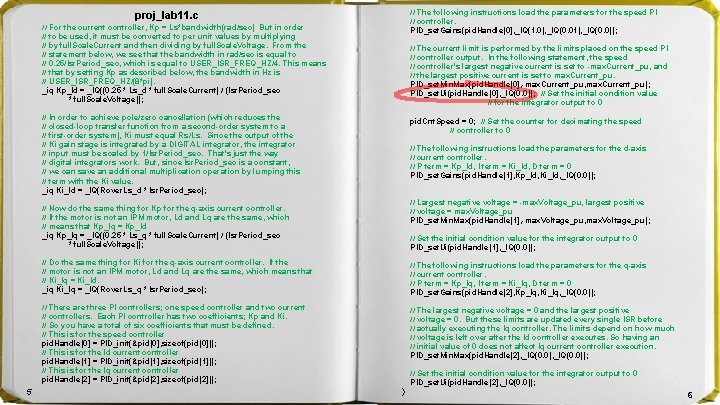 proj_lab11. c
// For the current controller, Kp = Ls*bandwidth(rad/sec) But in order
// to be used, it must be converted to per unit values by multiplying
// by fullScaleCurrent and then dividing by fullScaleVoltage. From the
// statement below, we see that the bandwidth in rad/sec is equal to
// 0.25/IsrPeriod_sec, which is equal to USER_ISR_FREQ_HZ/4. This means
// that by setting Kp as described below, the bandwidth in Hz is
// USER_ISR_FREQ_HZ/(8*pi).
_iq Kp_Id = _IQ((0.25 * Ls_d * fullScaleCurrent) / (IsrPeriod_sec
* fullScaleVoltage));
// In order to achieve pole/zero cancellation (which reduces the
// closed-loop transfer function from a second-order system to a
// first-order system), Ki must equal Rs/Ls. Since the output of the
// Ki gain stage is integrated by a DIGITAL integrator, the integrator
// input must be scaled by 1/IsrPeriod_sec. That's just the way
// digital integrators work. But, since IsrPeriod_sec is a constant,
// we can save an additional multiplication operation by lumping this
// term with the Ki value.
_iq Ki_Id = _IQ(RoverLs_d * IsrPeriod_sec);
// Now do the same thing for Kp for the q-axis current controller.
// If the motor is not an IPM motor, Ld and Lq are the same, which
// means that Kp_Iq = Kp_Id
_iq Kp_Iq = _IQ((0.25 * Ls_q * fullScaleCurrent) / (IsrPeriod_sec
* fullScaleVoltage));
// Do the same thing for Ki for the q-axis current controller. If the
// motor is not an IPM motor, Ld and Lq are the same, which means that
// Ki_Iq = Ki_Id
_iq Ki_Iq = _IQ(RoverLs_q * IsrPeriod_sec);
// There are three PI controllers; one speed controller and two current
// controllers. Each PI controller has two coefficients; Kp and Ki.
// So you have a total of six coefficients that must be defined.
// This is for the speed controller
pidHandle[0] = PID_init(&pid[0],sizeof(pid[0]));
// This is for the Id current controller
pidHandle[1] = PID_init(&pid[1],sizeof(pid[1]));
// This is for the Iq current controller
pidHandle[2] = PID_init(&pid[2],sizeof(pid[2]));
5
// The following instructions load the parameters for the speed PI
// controller.
PID_setGains(pidHandle[0],_IQ(1.0),_IQ(0.01),_IQ(0.0));
// The current limit is performed by the limits placed on the speed PI
// controller output. In the following statement, the speed
// controller's largest negative current is set to -maxCurrent_pu, and
// the largest positive current is set to maxCurrent_pu.
PID_setMinMax(pidHandle[0],-maxCurrent_pu,maxCurrent_pu);
PID_setUi(pidHandle[0],_IQ(0.0)); // Set the initial condition value
// for the integrator output to 0
pidCntSpeed = 0; // Set the counter for decimating the speed
// controller to 0
// The following instructions load the parameters for the d-axis
// current controller.
// P term = Kp_Id, I term = Ki_Id, D term = 0
PID_setGains(pidHandle[1],Kp_Id,Ki_Id,_IQ(0.0));
// Largest negative voltage = -maxVoltage_pu, largest positive
// voltage = maxVoltage_pu
PID_setMinMax(pidHandle[1],-maxVoltage_pu,maxVoltage_pu);
// Set the initial condition value for the integrator output to 0
PID_setUi(pidHandle[1],_IQ(0.0));
// The following instructions load the parameters for the q-axis
// current controller.
// P term = Kp_Iq, I term = Ki_Iq, D term = 0
PID_setGains(pidHandle[2],Kp_Iq,Ki_Iq,_IQ(0.0));
// The largest negative voltage = 0 and the largest positive
// voltage = 0. But these limits are updated every single ISR before
// actually executing the Iq controller. The limits depend on how much
// voltage is left over after the Id controller executes. So having an
// initial value of 0 does not affect Iq current controller execution.
PID_setMinMax(pidHandle[2],_IQ(0.0),_IQ(0.0));
// Set the initial condition value for the integrator output to 0
PID_setUi(pidHandle[2],_IQ(0.0));
}
6